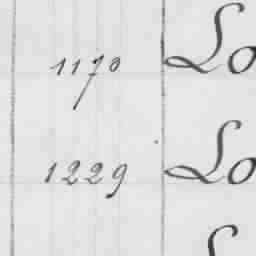 1170 Lo
1229 Lo